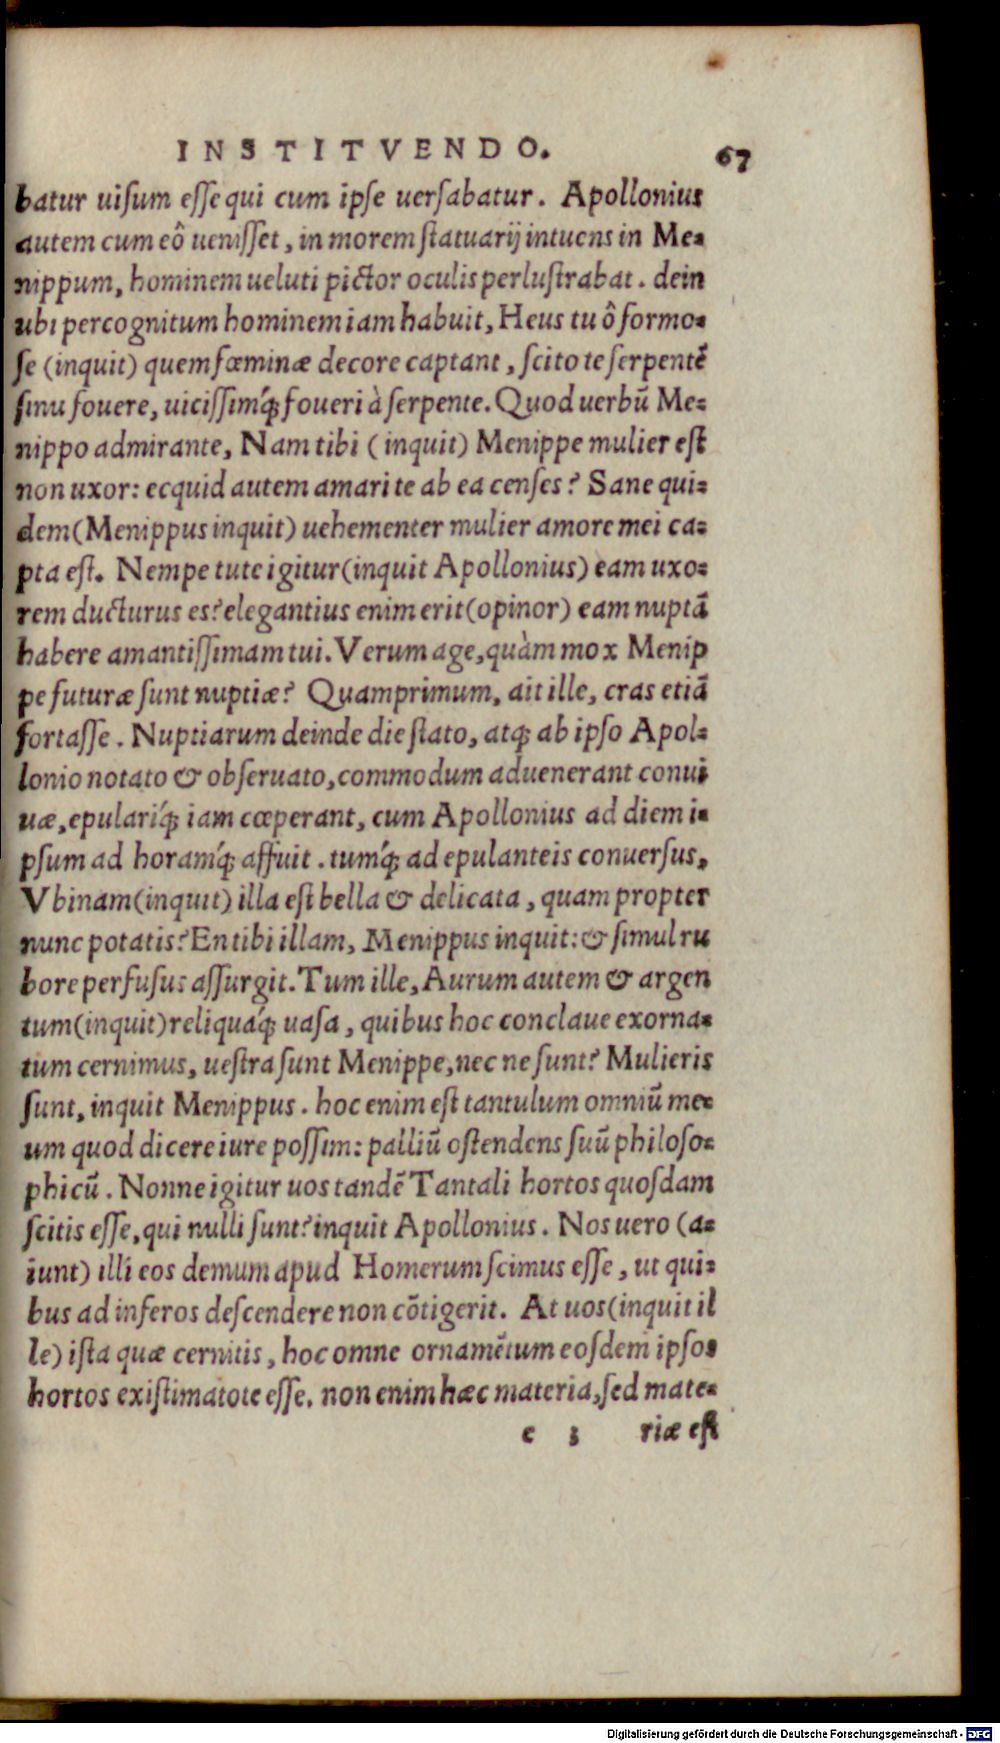 INSTITVENDO. 67
batur uiſum eſſe qui cum ipſe uerſabatur. Apollonius
autem cum eô ueniſſet, in morem ſtatuarij intuens in Me-
nippum, hominem ueluti pictor oculis perluſtrabat. dein
ubi percognitum hominem iam habuit, Heus tu ô formo-
ſe (inquit) quem fœminæ decore captant, ſcito te ſerpentē
ſinu fouere, uiciſſimq́; foueri à ſerpente. Quod uerbū Me-
nippo admirante, Nam tibi (inquit) Menippe mulier eſt
non uxor: ecquid autem amari te ab ea cenſes? Sane qui-
dem (Menippus inquit) uehementer mulier amore mei ca-
pta eſt. Nempe tute igitur (inquit Apollonius) eam uxo-
rem ducturus es? elegantius enim erit (opinor) eam nuptā
habere amantiſſimam tui. Verum age, quàm mox Menip
pe futuræ ſunt nuptiæ? Quamprimum, ait ille, cras etiā
fortaſſe. Nuptiarum deinde die ſtato, atq; ab ipſo Apol-
lonio notato & obſeruato, commodum aduenerant conui
uæ, epulariq́; iam cœperant, cum Apollonius ad diem i-
pſum ad horamq́; affuit. tumq́; ad epulanteis conuerſus,
Vbinam (inquit) illa eſt bella & delicata, quam propter
nunc potatis? En tibi illam, Menippus inquit: & ſimul ru
bore perfuſus aſſurgit. Tum ille, Aurum autem & argen
tum (inquit) reliquaq́; uaſa, quibus hoc conclaue exorna-
tum cernimus, ueſtra ſunt Menippe, nec ne ſunt? Mulieris
ſunt, inquit Menippus. hoc enim eſt tantulum omniū me-
um quod dicere iure poſſim: palliū oſtendens ſuū philoſo-
phicū. Nonne igitur uos tandē Tantali hortos quoſdam
ſcitis eſſe, qui nulli ſunt? inquit Apollonius. Nos uero (a-
iunt) illi eos demum apud Homerum ſcimus eſſe, ut qui-
bus ad inferos deſcendere non cōtigerit. At uos (inquit il
le) iſta quæ cernitis, hoc omne ornamētum eoſdem ipſos
hortos exiſtimatote eſſe. non enim hæc materia, ſed mate-
e 3 riæ eſt
Digitalisierung gefördert durch die Deutsche Forschungsgemeinschaft - DFG